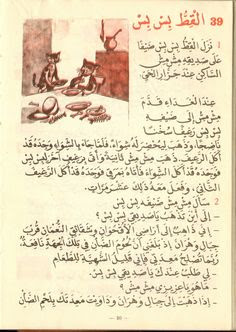 39 القِطُّ بِسْ بِسْ
1 نَزَلَ القِطُّ بِسْ بِسْ ضَيْفًا
عَلَى صَدِيقِهِ مِشْ مِشْ
السَّاكِنِ عِنْدَ جَزَّارِ الحَيِّ.
عِنْدَ الْغَدَاءِ قَدَّمَ
مِشْ مِشْ إِلَى ضَيْفِهِ
بِسْ بِسْ رَغِيفًا سُخْنًا
نَاضِجًا، وَذَهَبَ لِيُحْضِرَ لَهُ شِوَاءً، فَلَمَّا جَاءَ بِالشِّوَاءِ وَجَدَهُ قَدْ
أَكَلَ الرَّغِيفَ. ذَهَبَ مِشْ مِشْ ثَانِيَةً وَأَتَى بِرَغِيفٍ آخَرَ لِبِسْ بِسْ
فَوَجَدَهُ قَدْ أَكَلَ الشِّوَاءَ، فَأَتَاهُ بِمَرَقٍ فَوَجَدَهُ قَدْ أَكَلَ الرَّغِيفَ
الثَّانِي، وَفَعَلَ مَعَهُ ذَلِكَ عَشْرَ مَرَّاتٍ.
2 سَأَلَ مِشْ مِشْ ضَيْفَهُ بِسْ بِسْ
- إِلَى أَيْنَ تَذْهَبُ يَا صَدِيقِي بِسْ بِسْ؟
- إِنِّي ذَاهِبٌ إِلَى أَرَاضِي الأُقْحُوَانِ وَشَقَائِقِ النُّعْمَانِ قُرْبَ
جِبَالِ وَهْرَانَ إِذْ بَلَغَنِي أَنَّ لُحُومَ الضَّأْنِ فِي تِلْكَ الْجِهَةِ نَافِعَةٌ،
رُبَّمَا تُصْلِحُ مَعِدَتِي فَإِنِّي قَلِيلُ الشَّهِيَّةِ لِلطَّعَامِ
- لِي طَلَبٌ عِنْدَكَ يَا صَدِيقِي بِسْ بِسْ.
- مَا هُوَ يَا عَزِيزِي مِشْ مِشْ؟
- إِذَا ذَهَبْتَ إِلَى جِبَالِ وَهْرَانَ وَدَاوَيْتَ مَعِدَتَكَ بِلَحْمِ الضَّأْنِ